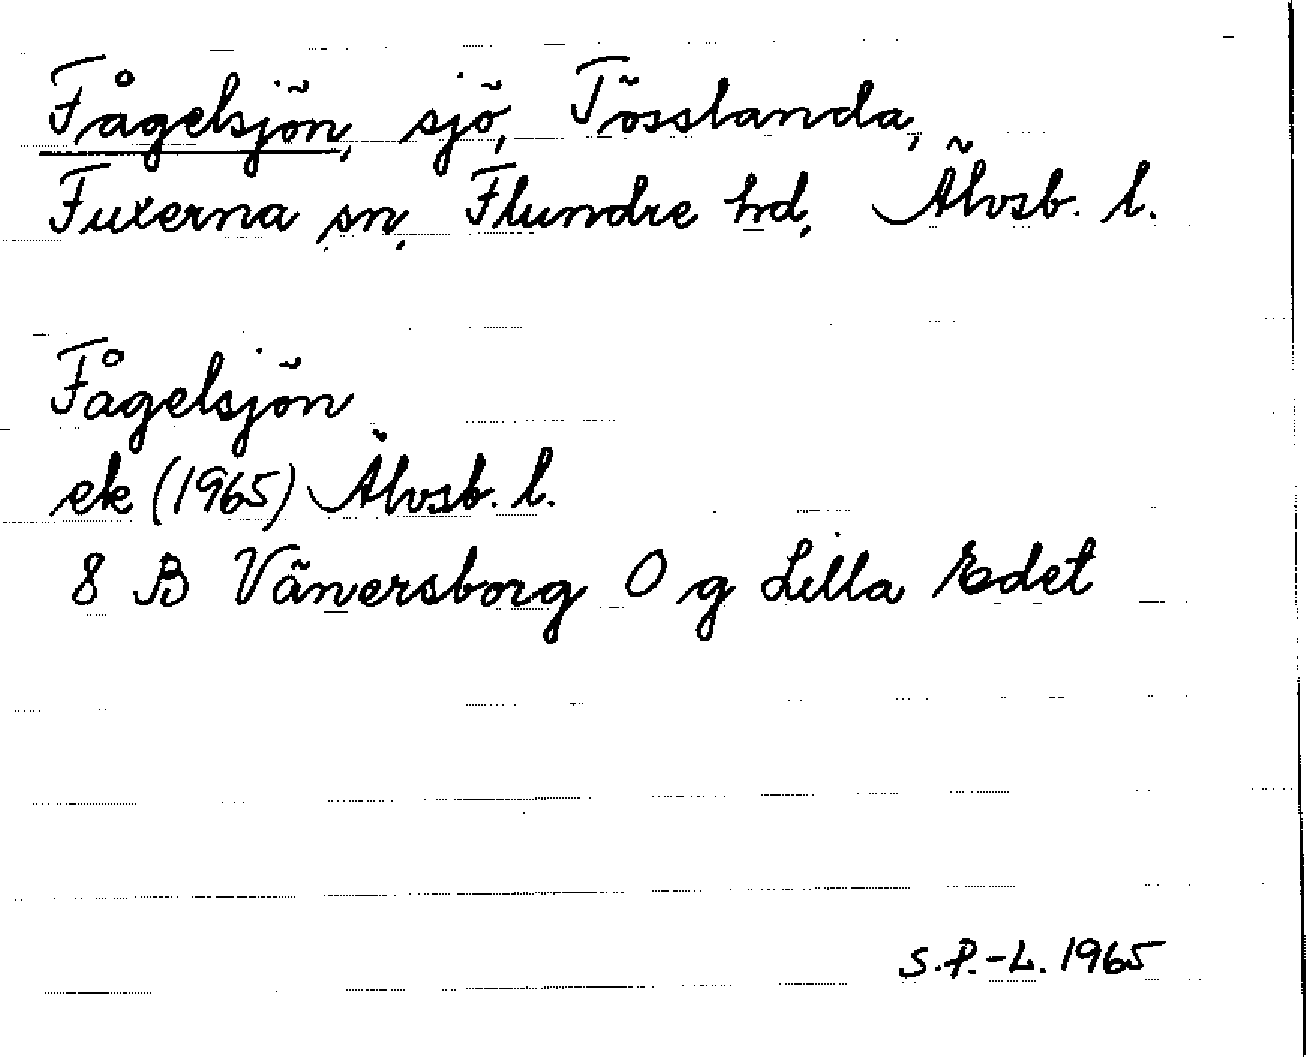 Fågelsjön, sjö, Tösslanda,
Fuxerna sn, Flundre hd, Älvsb. l.
Fågelsjön
ek (1965) Älvsb. l.
8 B Vänersborg 0 g Lilla Edet
S.P.-L. 1965